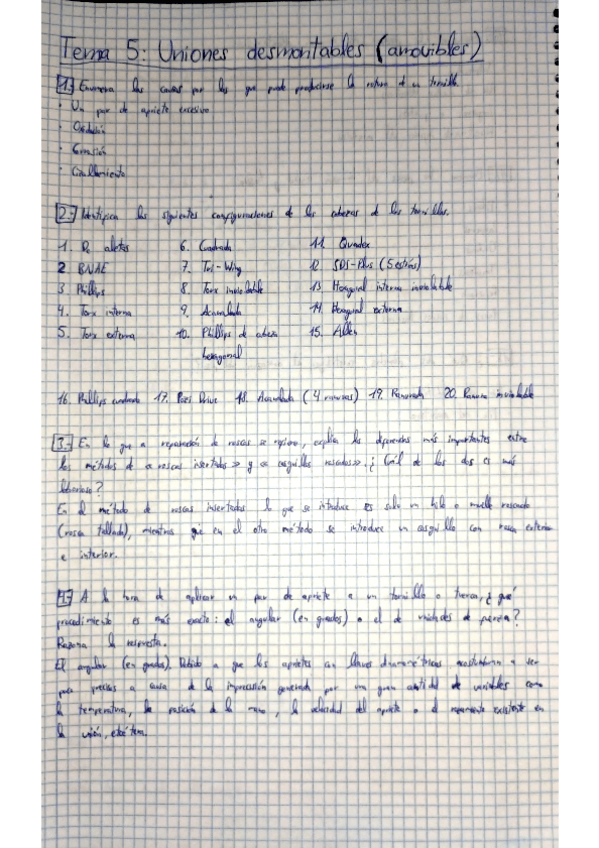 Tema 5: Uniones desmontables (amovibles)
1.- Enumera las causas por las que puede producirse la rotura de un tornillo.
· Un par de apriete excesivo
· Oxidación
· Corrosión
· Cizallamiento
2.- Identifica las siguientes configuraciones de las cabezas de los tornillos.
1. De aletas 6. Cuadrada 11. Quadex
2 BNAE 7. Tri-Wing 12. SDS-Plus (5 estrías)
3 Phillips 8 Torx inviolable 13 Hexagonal interna inviolable
4. Torx interna 9. Acanalada 14. Hexagonal externa
5. Torx externa 10. Phillips de cabeza 15. Allen
hexagonal
16. Phillips cuadrada 17. Pozi Drive 18. Acanalada (4 ranuras) 19. Ranurada 20. Ranura inviolable
3.- En lo que a reparación de roscas se refiere, explica las diferencias más importantes entre
los métodos de «roscas insertadas» y «casquillos roscados». ¿Cuál de los dos es más
laborioso?
En el método de roscas insertadas lo que se introduce es solo un hilo o muelle roscado
(rosca tallada), mientras que en el otro método se introduce un casquillo con rosca exterior
e interior.
4.- A la hora de aplicar un par de apriete a un tornillo o tuerca, ¿qué
procedimiento es más exacto: el angular (en grados) o el de unidades de fuerza?
Razona la respuesta.
El angular (en grados). Debido a que los aprietes con llaves dinamométricas acostumbran a ser
poco precisos a causa de la imprecisión generada por una gran cantidad de variables como
la temperatura, la posición de la mano, la velocidad del apriete o el rozamiento existente en
la unión, etcétera.